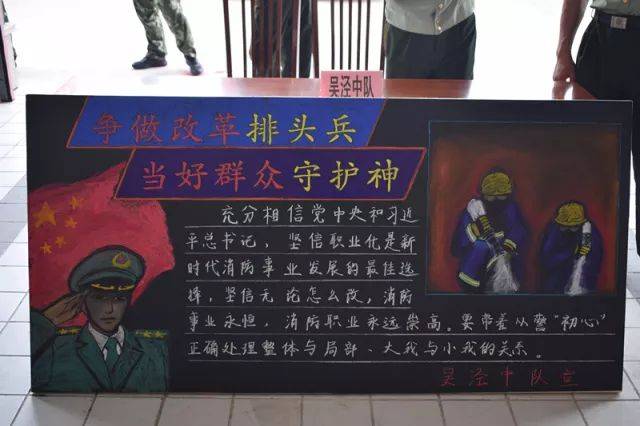 吴泾中队
争做改革排头兵
当好群众守护神
充分相信党中央和习近
平总书记，坚信职业化是新
时代消防事业发展的最佳选
择，坚信无论怎么改，消防
事业永恒，消防职业永远崇高。要带着从警“初心”
正确处理整体与局部、大我与小我的关系。
吴泾中队宣